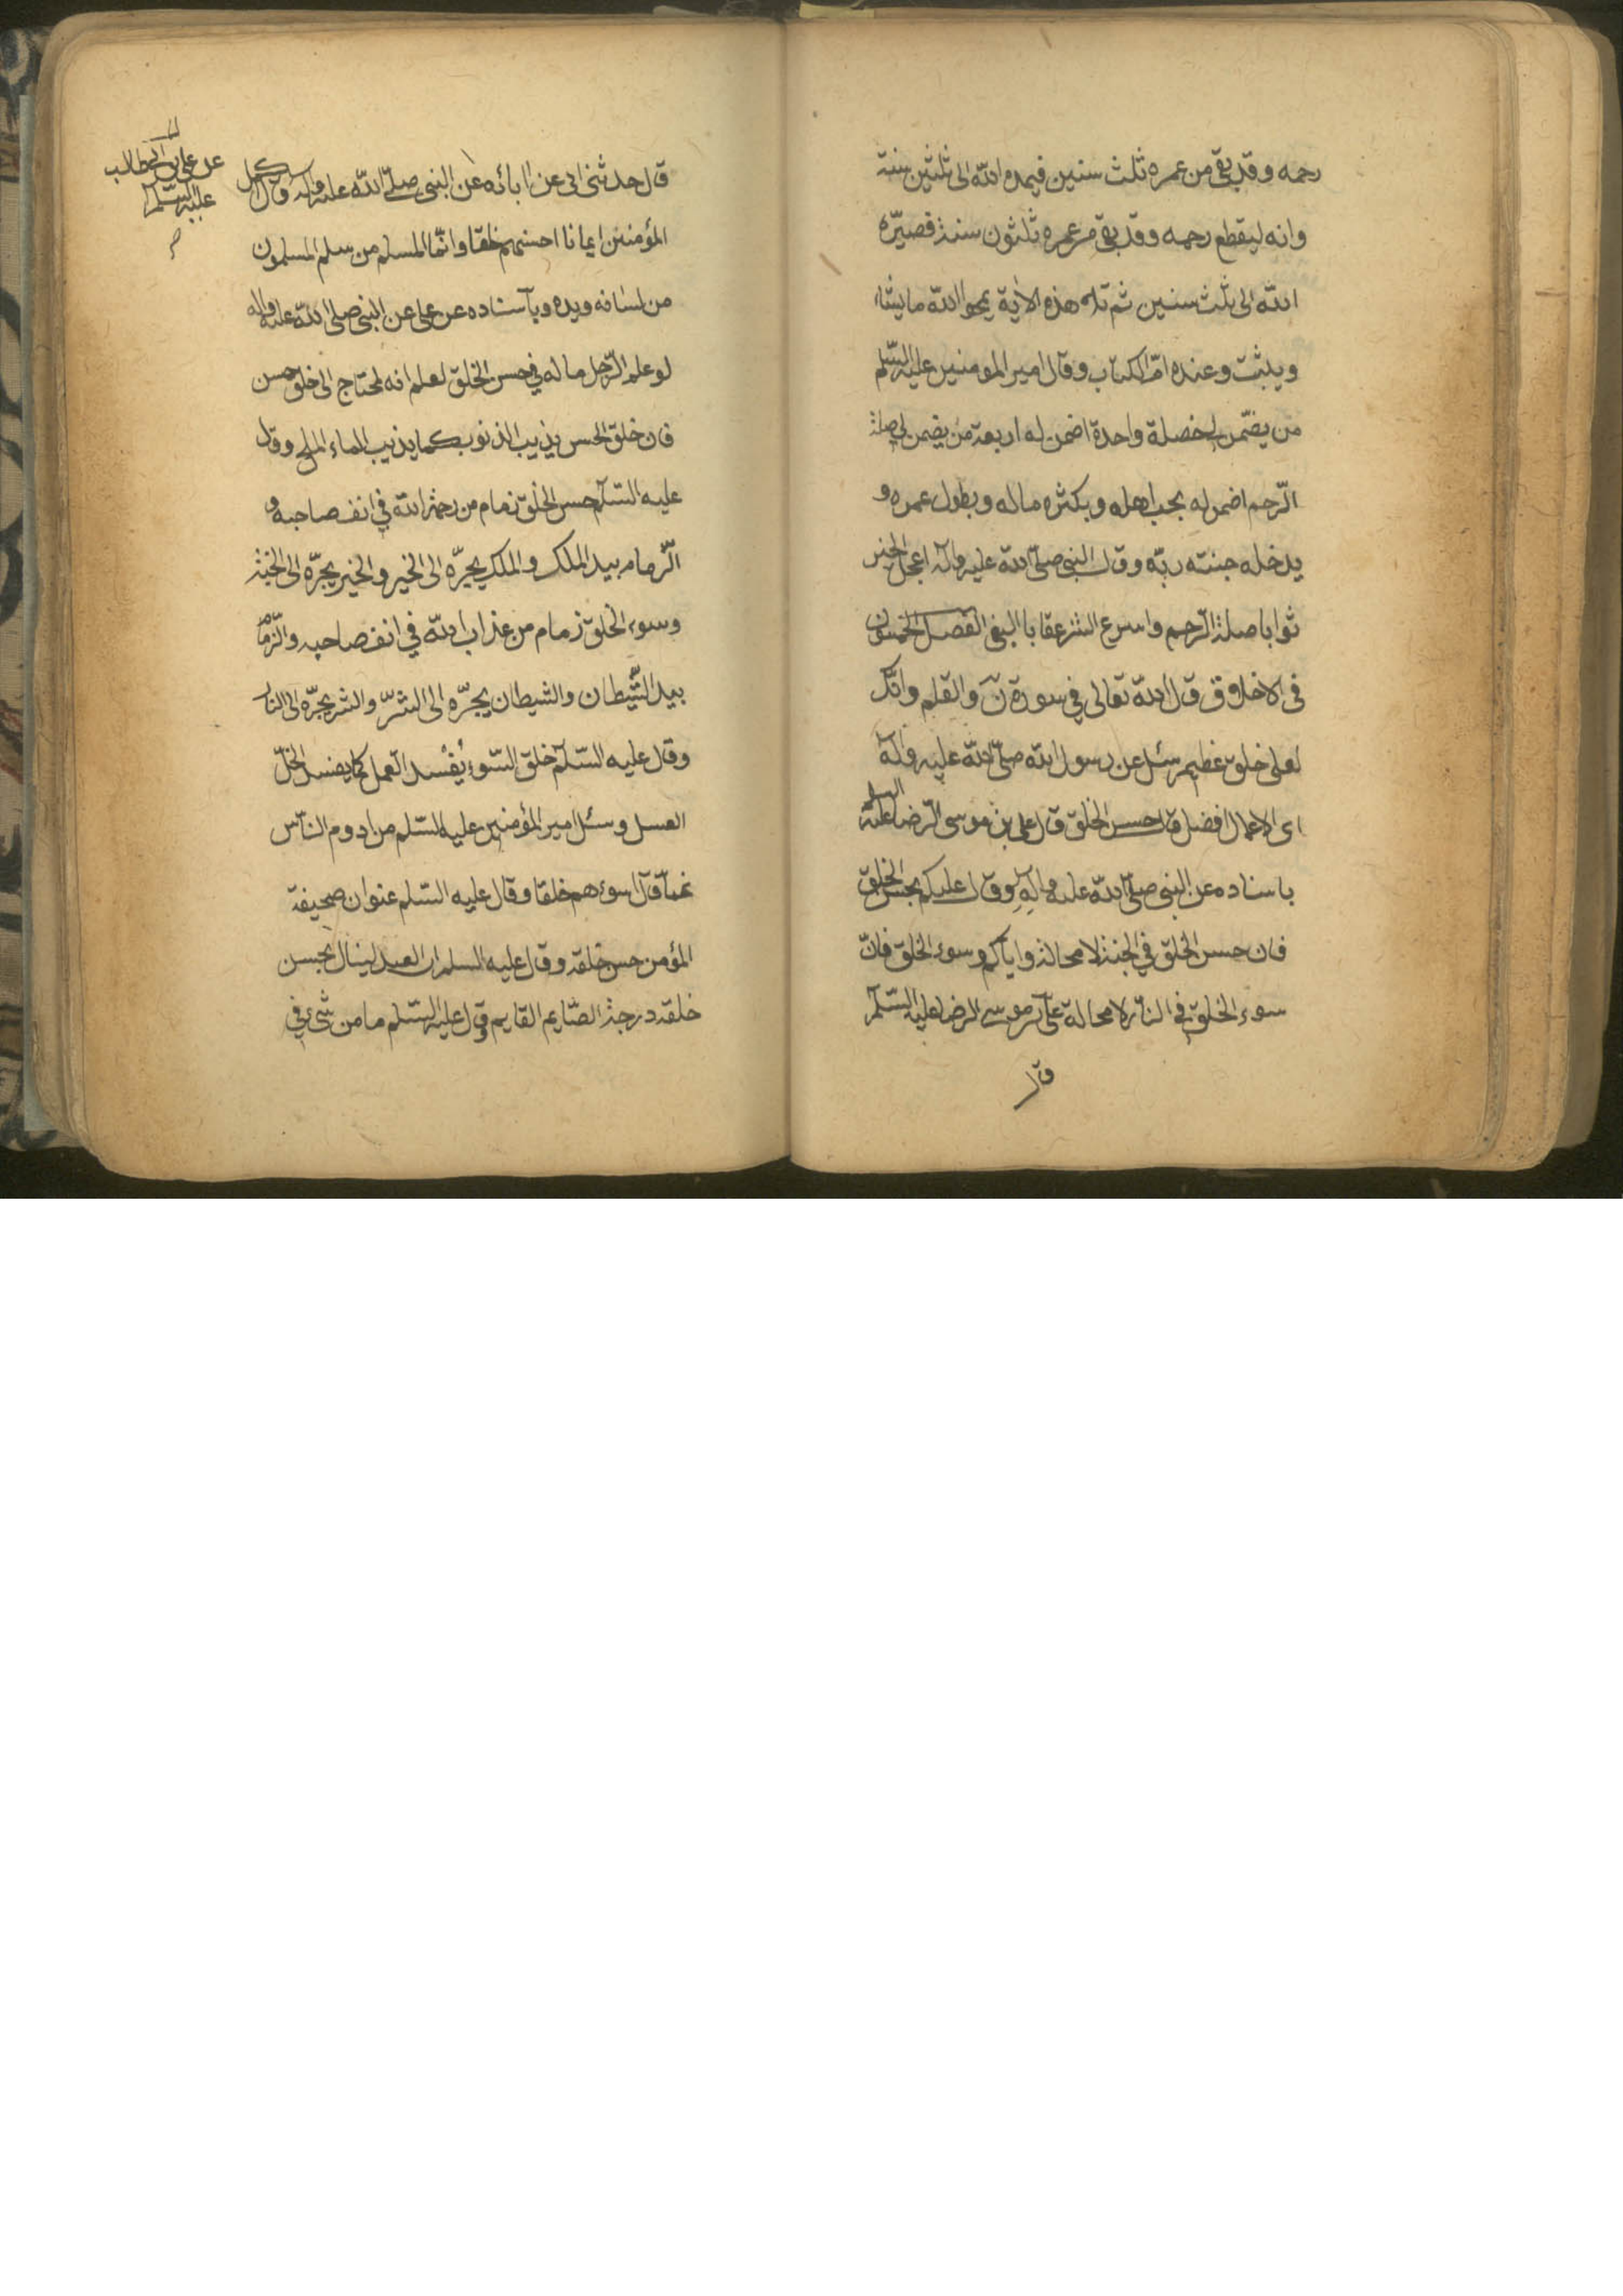 رحمه وقد بقي من عمره ثلث سنين فيمده الله الى ثلثين سنة
وانه ليقطع رحمه وقد بقي من عمره ثلثون سنة قصيّره
الله الى ثلث سنين ثم تلا هذه الاية يمحوا الله ما يشاء
ويثبت وعنده امّ الكتاب وقال امير المومنين عليه السّلم
من يضمن لي خصلة واحدة اضمن له اربعة من يضمن لي صلة
الرّحم اضمن له بحب اهله وبكثره ماله وبطول عمره و
يدخله جنته ربّه وقال النبي صلّى الله عليه واله اعجل الخير
ثوابا صلة الرّحم واسرع الشر عقابا البغي الفصل الخمسون
في الاخلاق قال الله تعالى في سورة نٓ والقلم وانّك
لعلى خلق عظيم سئل عن رسول الله صلّى الله عليه واله
اى الاعمال افضل قال حسن الخلق قال علي بن موسى الرّضا عليه السلم
باسناده عن النبي صلّى الله عليه واله وقال عليكم بحسن الخلق
فان حسن الخلق في الجنة لا محالة واياكم وسوء الخلق فانّ
سوء الخلق في النّار لا محالة علي بن موسى الرضا عليه السّلم
قال
قال حدثني ابي عن ابائه عن النبي صلّى الله عليه واله قال اكمل
عن علي بن ابي طالب
عليه السّلم
المؤمنين ايمانا احسنهم خلقا وانّما المسلم من سلم المسلمون
من لسانه ويده وباسناده عن علي عن النبي صلى الله عليه واله
لو علم الرّجل ما له في حسن الخلق لعلم انه لمحتاج الى خلق حسن
فان خلق الحسن يذيب الذنوب كما يذيب الماء الملح وقال
عليه السّلم حسن الخلق زمام من رحمة الله في انف صاحبه و
الزّمام بيد الملك والملك يجرّه الى الخير والخير يجرّه الى الجنة
وسوء الخلق زمام من عذاب الله في انف صاحبه والزّمام
بيد الشّيطان والشيطان يجرّه الى الشرّ والشر يجرّه الى النار
وقال عليه السّلم خلق السّوء يُفْسد العمل كما يفسد الخلّ
العسل وسئل امير المؤمنين عليه السّلم من ادوم النّاس
غمّا قال اسوءهم خلقا وقال عليه السّلم عنوان صحيفة
المؤمن حسن خلقه وقال عليه السلم ان العبد لينال بحسن
خلقه درجة الصّايم القايم وقال عليه السّلم ما من شيء في